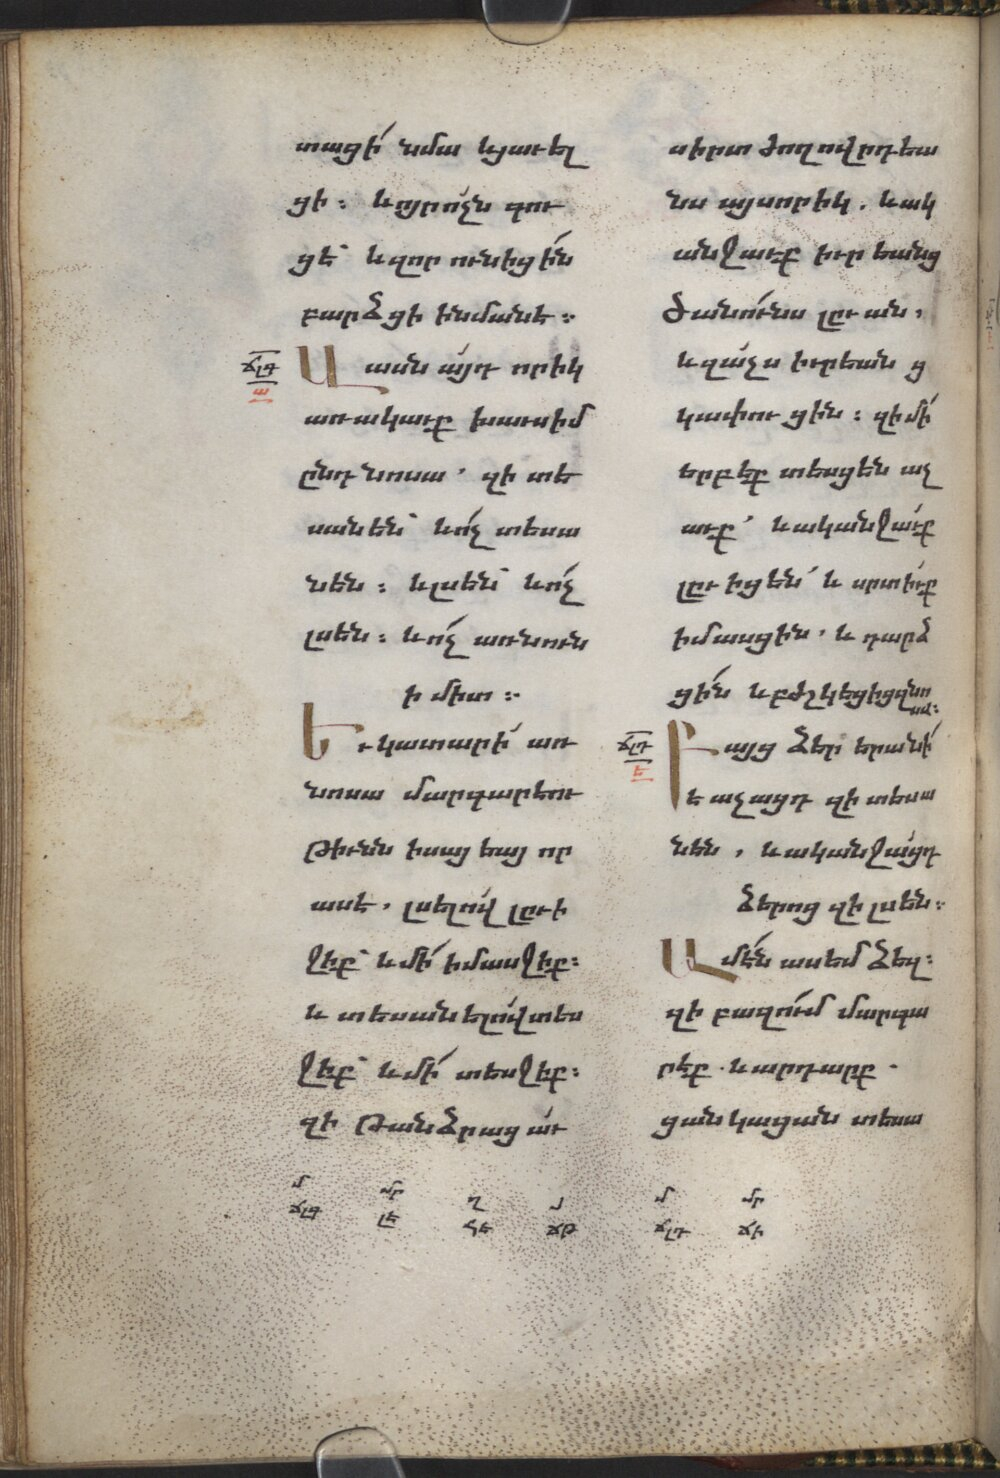 տացի՛ նմա և յաւել
ցի։ և որո՛չն գու
ցե՛ և զոր ունիցի՛ն
բարձցի ինմանէ։
ճլգ
ա
Վասն ա՛յդ որիկ
առակաւք խաւսիմ
ընդ նոսա՛ զի տե
սանեն՝ և ո՛չ տեսա
նեն։ և լսեն՝ և ո՛չ
լսեն։ և ո՛չ առնուն
ի միտ։
Եւ կատարի՛ առ
նոսա մարգարէու
թիւնն եսայեայ որ
ասէ, լսելո՛վ լըւի
ջիք՝ և մի՛ իմասջիք։
և տեսանելո՛վ տես
ջիք՝ և մի՛ տեսջիք։
զի թանձրացա՛ւ
սիրտ ժողովրդեա
նս այսորիկ. և ակ
անջաւք իւրեանց
ծանո՛ւնս լըւան,
և զա՛չս իւրեանց
կափուցին։ զի մի՛
երբեք տեսցեն աչ
աւք՛ և ականջա՛ւք
լըւիցեն՛ և սրտի՛ւք
իմասցին, և դարձ
ցի՛ն և բժշկեցից զնո
սա։
ճլդ
ե
Բայց ձեր երանի՛
է աչացդ զի տեսա
նեն, և ականջա՛ցդ
ձերոց զի լսեն։
Ամէ՛ն ասեմ ձեզ։
զի բազո՛ւմ մարգա
րէք. և արդարք.
ցանկացան տեսա
մ մր ղ յ մ մր
ճլգ լե հե ճթ ճլդ ճի